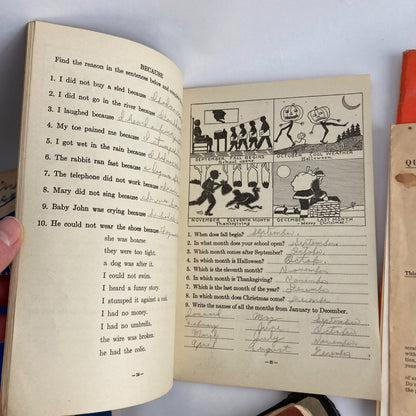 BECAUSE
Find the reason in the sentences below and
1. I did not buy a sled because I had
2. I did not go in the river because I
3. I laughed because I heard a funny
4. My toe pained me because I stumped
5. I got wet in the rain because I had no
6. The rabbit ran fast because a dog was
7. The telephone did not work because
8. Mary did not sing because she was
9. Baby John was crying because he had
10. He could not wear the shoes because
she was hoarse
they were too tight.
a dog was after it.
I could not swim.
I heard a funny story.
I stumped it against a nail.
I had no money.
I had no umbrella.
the wire was broken.
he had the colic.
SEPTEMBER FALL BEGINS
School opens
OCTOBER WEATHER
Halloween
NOVEMBER ELEVENTH MONTH
Thanksgiving
DECEMBER LAST MONTH
Merry
1. When does fall begin? September.
2. In what month does your school open? September
3. Which month comes after September? October.
4. In which month is Halloween? October
5. Which is the eleventh month? November
6. In which month is Thanksgiving? November
7. Which is the last month of the year? December
8. In which month does Christmas come? December
9. Write the names of all the months from January to December.
January May September
February June October
March July November
April August December
QU
This
scrat
with
with
of an
to D